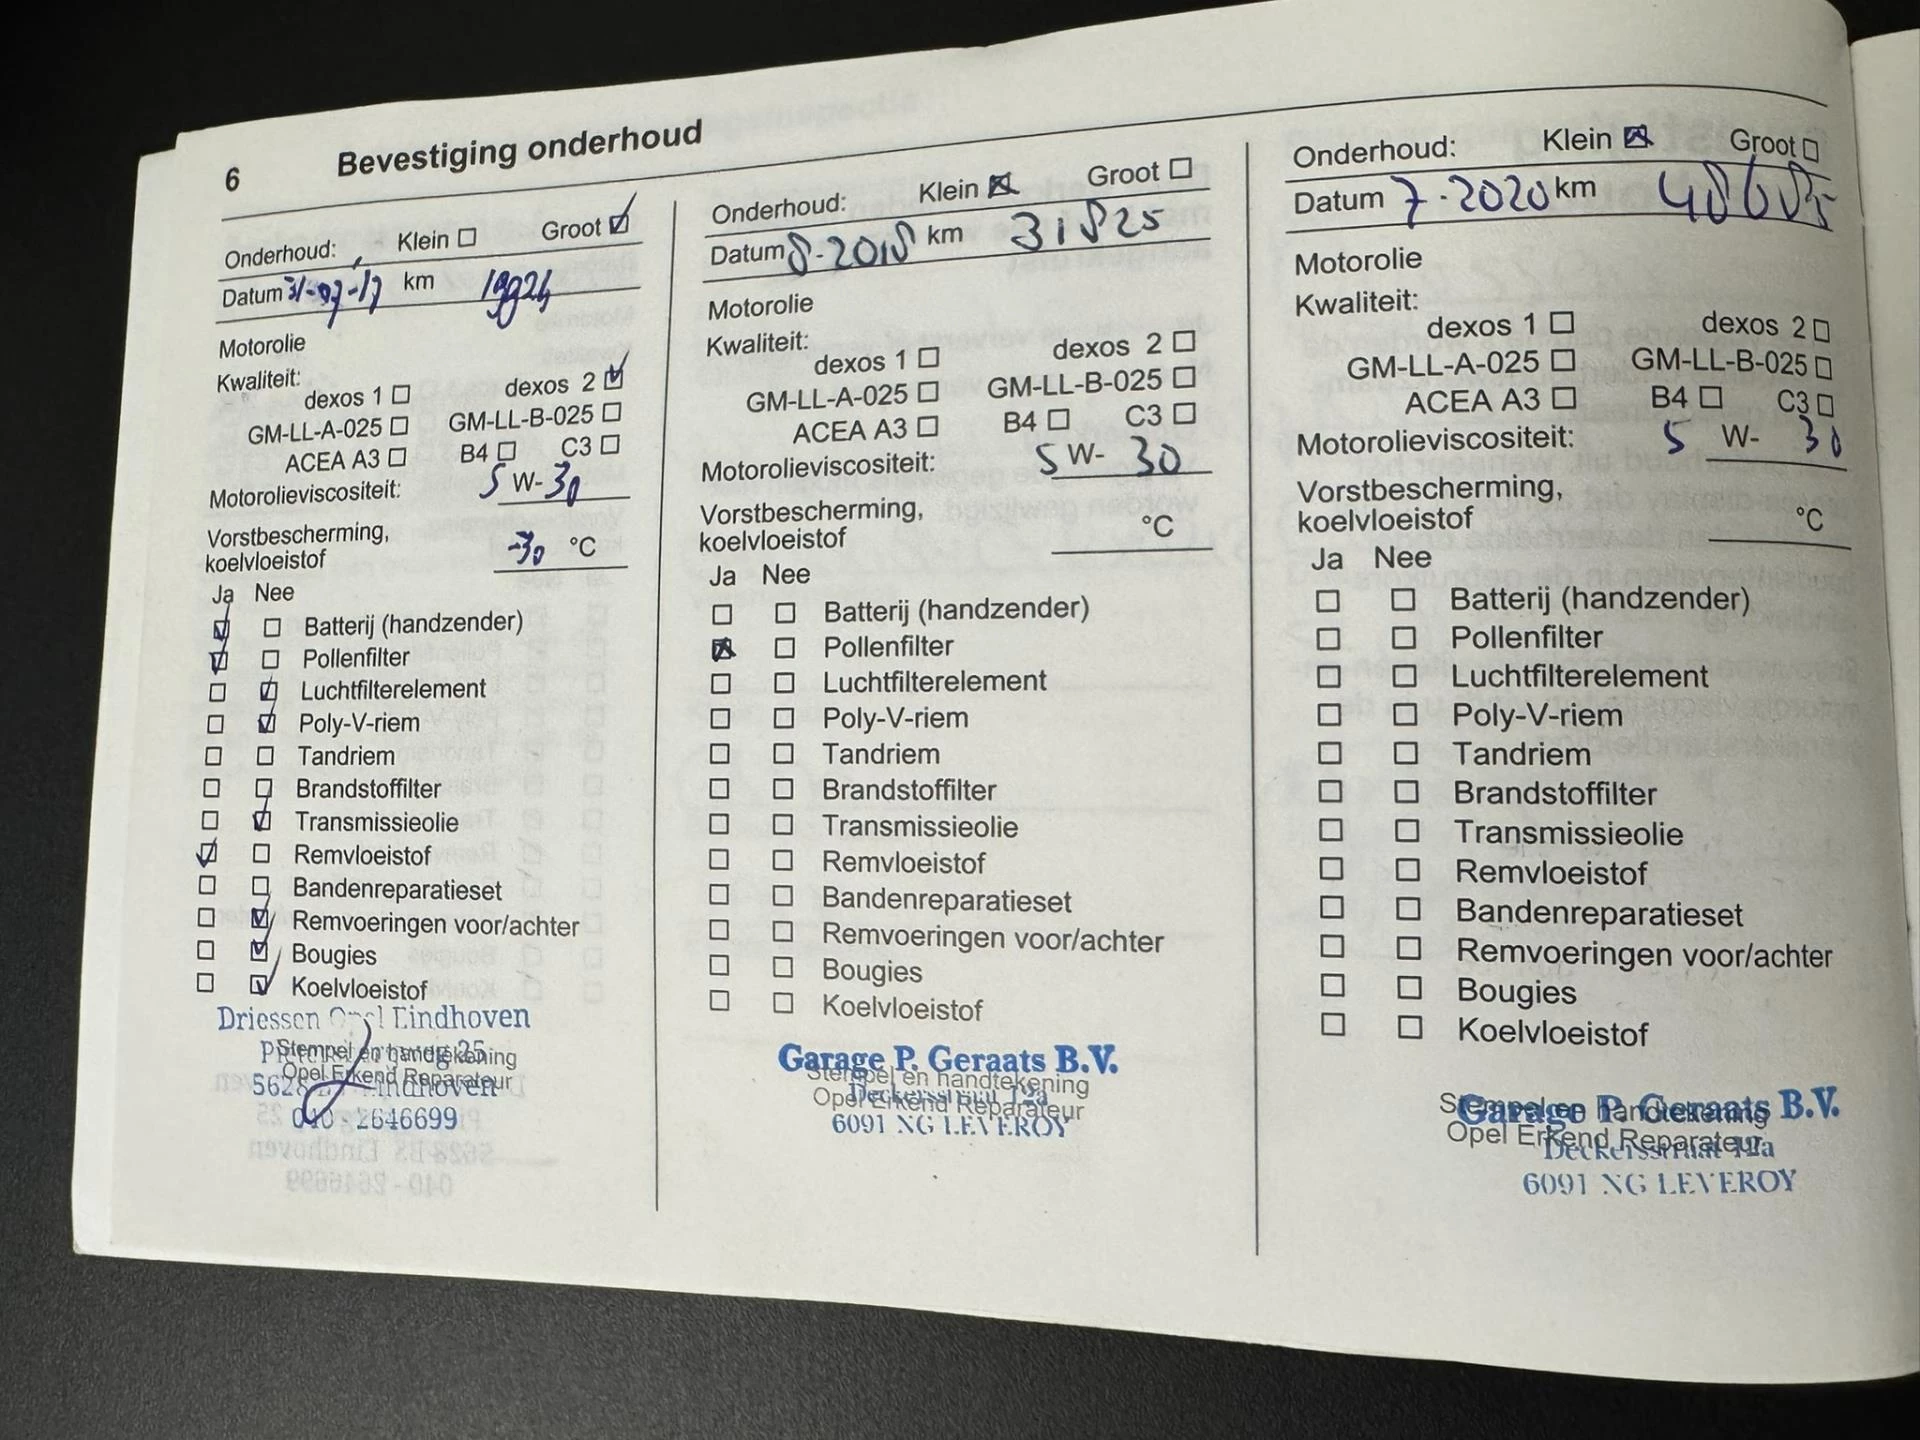 6 Bevestiging onderhoud
Onderhoud: Klein ☐ Groot ☑
Datum 31-07-17 km
Motorolie
Kwaliteit:
dexos 1 ☐ dexos 2 ☑
GM-LL-A-025 ☐ GM-LL-B-025 ☐
ACEA A3 ☐ B4 ☐ C3 ☐
Motorolieviscositeit: 5 W-30
Vorstbescherming,
koelvloeistof -30 °C
Ja Nee
☑ ☐ Batterij (handzender)
☑ ☐ Pollenfilter
☐ ☑ Luchtfilterelement
☐ ☑ Poly-V-riem
☐ ☐ Tandriem
☐ ☐ Brandstoffilter
☐ ☑ Transmissieolie
☑ ☐ Remvloeistof
☐ ☐ Bandenreparatieset
☐ ☑ Remvoeringen voor/achter
☐ ☑ Bougies
☐ ☑ Koelvloeistof
Driessen Opel Eindhoven
Stempel en handtekening
25
Opel Erkend Reparateur
5628 Eindhoven
040 - 2646699
Onderhoud: Klein ☒ Groot ☐
Datum 8-2018 km 31825
Motorolie
Kwaliteit:
dexos 1 ☐ dexos 2 ☐
GM-LL-A-025 ☐ GM-LL-B-025 ☐
ACEA A3 ☐ B4 ☐ C3 ☐
Motorolieviscositeit: 5 W- 30
Vorstbescherming,
koelvloeistof °C
Ja Nee
☐ ☐ Batterij (handzender)
☒ ☐ Pollenfilter
☐ ☐ Luchtfilterelement
☐ ☐ Poly-V-riem
☐ ☐ Tandriem
☐ ☐ Brandstoffilter
☐ ☐ Transmissieolie
☐ ☐ Remvloeistof
☐ ☐ Bandenreparatieset
☐ ☐ Remvoeringen voor/achter
☐ ☐ Bougies
☐ ☐ Koelvloeistof
Garage P. Geraats B.V.
Stempel en handtekening
Deckersstraat 12a
Opel Erkend Reparateur
6091 NG LEVEROY
Onderhoud: Klein ☒ Groot ☐
Datum 7-2020 km
Motorolie
Kwaliteit:
dexos 1 ☐ dexos 2 ☐
GM-LL-A-025 ☐ GM-LL-B-025 ☐
ACEA A3 ☐ B4 ☐ C3 ☐
Motorolieviscositeit: 5 W- 30
Vorstbescherming,
koelvloeistof °C
Ja Nee
☐ ☐ Batterij (handzender)
☐ ☐ Pollenfilter
☐ ☐ Luchtfilterelement
☐ ☐ Poly-V-riem
☐ ☐ Tandriem
☐ ☐ Brandstoffilter
☐ ☐ Transmissieolie
☐ ☐ Remvloeistof
☐ ☐ Bandenreparatieset
☐ ☐ Remvoeringen voor/achter
☐ ☐ Bougies
☐ ☐ Koelvloeistof
Garage P. Geraats B.V.
Stempel en handtekening
Opel Erkend Reparateur
Deckersstraat 12a
6091 NG LEVEROY